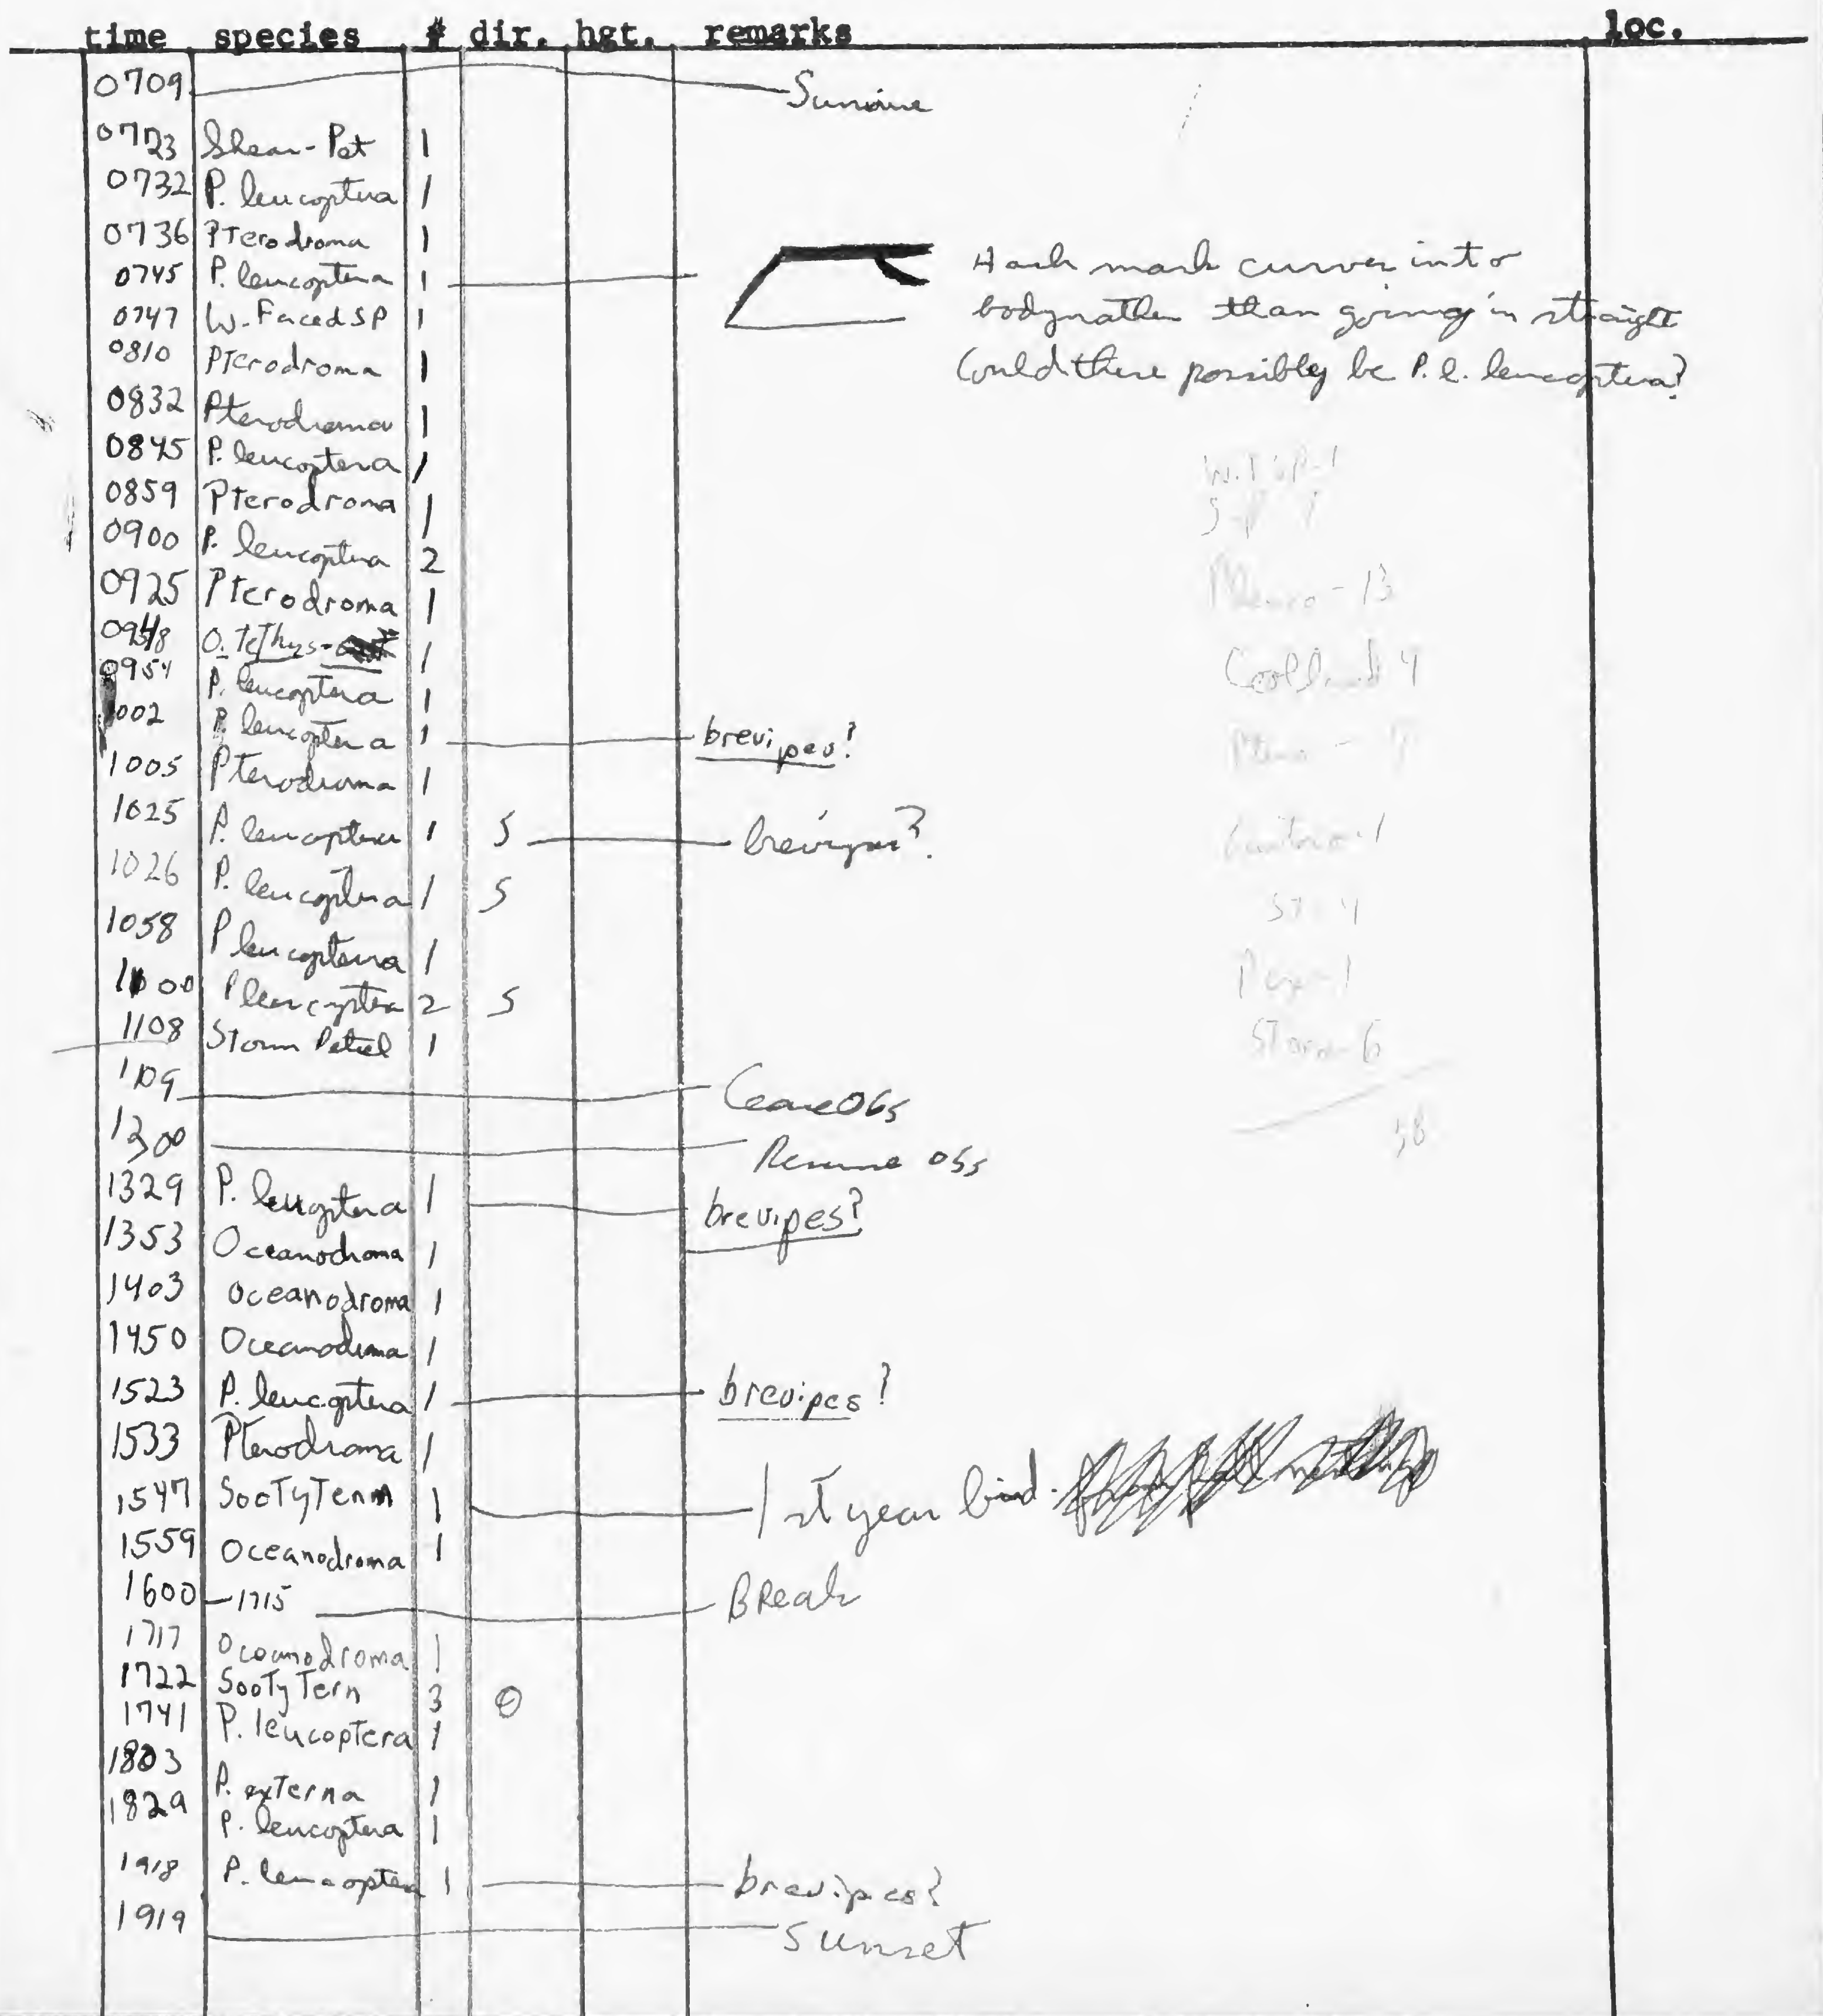 time species # dir. hgt. remarks loc.
0709 Sunrise
0723 Shear-Pet 1
0732 P. leucoptera 1
0736 Pterodroma 1
0745 P. leucoptera 1 Hash mark curves into
body rather than going in straight
Could there possibly be P. l. leucoptera?
0747 W-Faced SP 1
0810 Pterodroma 1
0832 Pterodroma 1
0845 P. leucoptera 1
0859 Pterodroma 1
0900 P. leucoptera 2
0925 Pterodroma 1
0948 O. Tethys- 1
0954 P. leucoptera 1
1002 P. leucoptera 1 brevipes?
1005 Pterodroma 1
1025 P. leucoptera 1 S brevipes?
1026 P. leucoptera 1 S
1058 P leucoptera 1
1100 P leucoptera 2 S
1108 Storm Petrel 1
1109 Cease Obs
1300 Resume obs
1329 P. leucoptera 1 brevipes?
1353 Oceanodroma 1
1403 Oceanodroma 1
1450 Oceanodroma 1
1523 P. leucoptera 1 brevipes?
1533 Pterodroma 1
1547 Sooty Tern 1 1st year bird.
1559 Oceanodroma 1
1600-1715 Break
1717 Oceanodroma 1
1722 Sooty Tern 3 0
1741 P. leucoptera 1
1803 P. externa 1
1829 P. leucoptera 1
1918 P. leucoptera 1 brevipes?
1919 Sunset
-13
4
-1
ST-4
-1
Storm-6
38